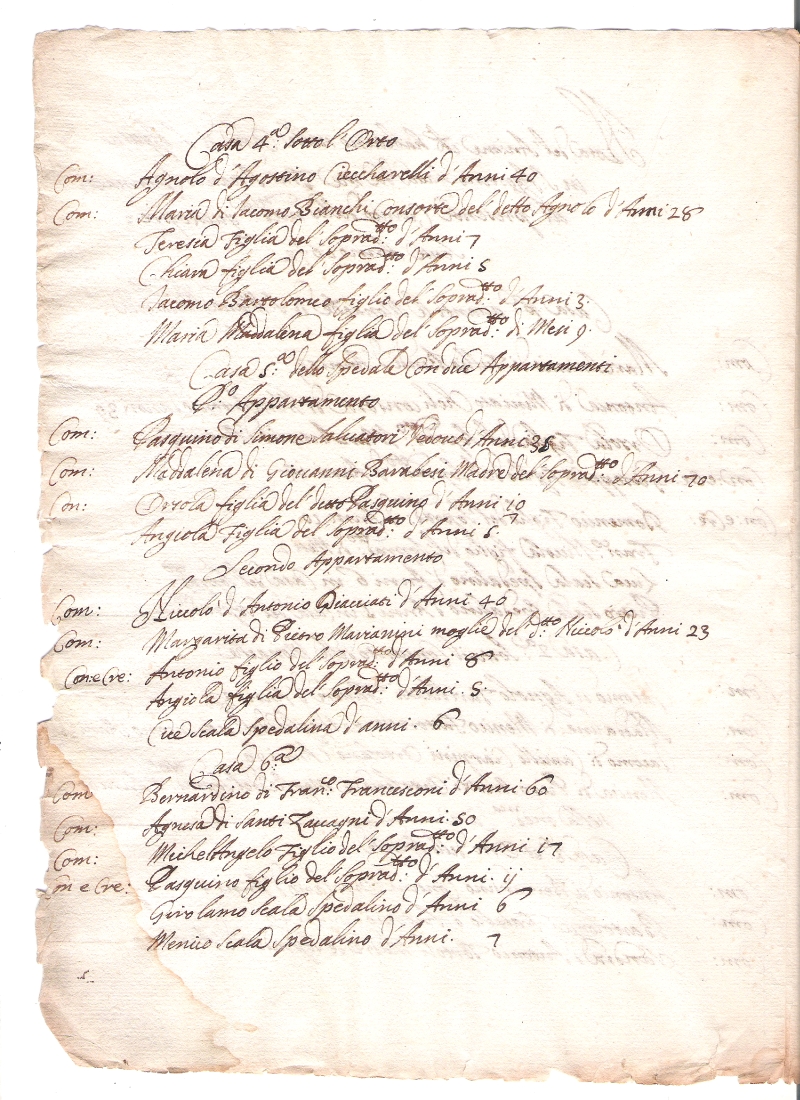 Casa 4.a Sotto l'Orto
Com: Agnolo d'Agostino Cieccharelli d'Anni 40
Com: Maria di Iacomo Bianchi Consorte del detto Agnolo d'Anni 28
Teresia Figlia del Soprad:tto d'Anni 7
Chiara figlia del Soprad:tto d'Anni 5
Iacomo Bartolomeo figlio del Soprad:tto d'Anni 3.
Maria Maddalena figlia del Soprad:tto di Mesi 9.
Casa 5:a dello Spedale Con due Appartamenti
P:o Appartamento
Com: Pasquino di Simone Salvatori Vedovo d'Anni 35
Com: Maddalena di Giovanni Barabesi Madre del Soprad:tto d'Anni 70
Con: Orsola figlia del detto Pasquino d'Anni 10
Angiola Figlia del Soprad:tto d'Anni 5
Secondo Appartamento
Com: Niccolò d'Antonio Diacciati d'Anni 40
Com: Margarita di Pietro Marianini moglie del d:tto Niccolò d'Anni 23
Con: e Cre: Antonio figlio del Soprad:tto d'Anni 8
Angiola figlia del Soprad:tto d'Anni. 5
Scala Spedalina d'anni. 6
Casa 6:a
Com Bernardino di Fran:o Francesconi d'Anni 60
Com: Agnesa di Santi Zavagni d'Anni 50
Com: MichelAngelo Figlio del Soprad:tto d'Anni 17
on e Cre: Pasquino figlio del Soprad:tto d'Anni. 11
Girolamo Scala Spedalino d'Anni 6
Menico Scala Spedalino d'Anni. 7